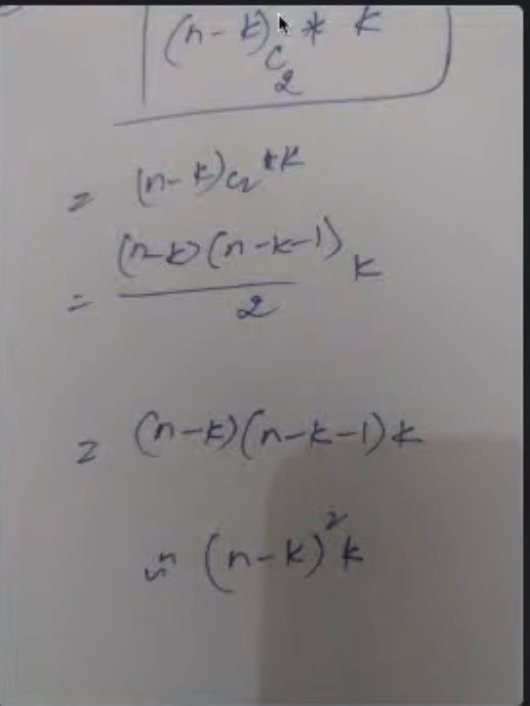 (n-k)C₂ * k
= (n-k)C₂ * k
= (n-k)(n-k-1)/2 k
= (n-k)(n-k-1)k
≈ (n-k)²k